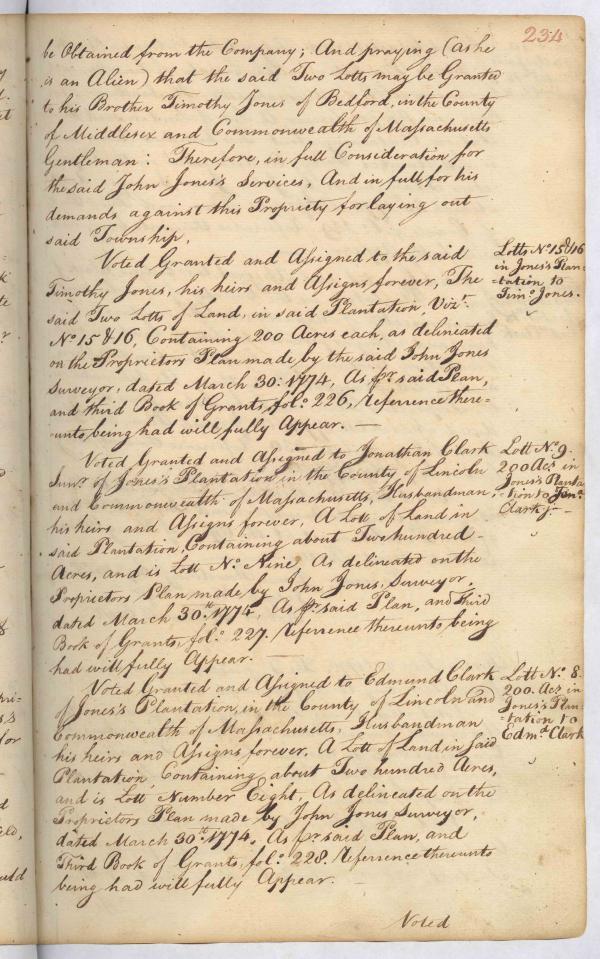 234
be Obtained from the Company; And praying (as he
is an Alien) that the said Two Lotts may be Granted
to his Brother Timothy Jones of Bedford, in the County
of Middlesex and Commonwealth of Massachusetts
Gentleman: Therefore, in full Consideration for
the said John Jones's Services, And in full for his
demands against this Propriety for laying out
said Township.
Voted Granted and Assigned to the said
Timothy Jones, his heirs and Assigns forever, The
said Two Lotts of Land, in said Plantation, Vizt.
No. 15 & 16, Containing 200 Acres each, as delineated
on the Proprietors Plan made by the said John Jones
Surveyor, dated March 30: 1774, As pr. said Plan,
and third Book of Grants, fol: 226, Referrence there=
unto being had will fully Appear. —
Lotts No. 15 & 16
in Jones's Plan=
=tation to
Timo. Jones.
Voted Granted and Assigned to Jonathan Clark
Junr. of Jones's Plantation, in the County of Lincoln
and Commonwealth of Massachusetts, Husbandman,
his heirs and Assigns forever, A Lott of Land in
said Plantation, Containing about Two hundred
Acres, and is Lott No. Nine, As delineated on the
Proprietors Plan made by John Jones, Surveyor,
dated March 30th. 1774, As pr. said Plan, and Third
Book of Grants, fol: 227. Referrence thereunto being
had will fully Appear. —
Lott No. 9.
200 Acs. in
Jones's Planta
=tion to Jona.
Clark jr. —
Voted Granted and Assigned to Edmund Clark
of Jones's Plantation, in the County of Lincoln and
Commonwealth of Massachusetts, Husbandman
his heirs and Assigns forever, A Lott of Land in said
Plantation, Containing about Two hundred Acres,
and is Lott Number Eight, As delineated on the
Proprietors Plan made by John Jones Surveyor,
dated March 30th. 1774, As pr. said Plan, and
Third Book of Grants, fol: 228. Referrence thereunto
being had will fully Appear. —
Lott No. 8.
200. Acs. in
Jones's Plan=
=tation to
Edmd. Clark
Voted